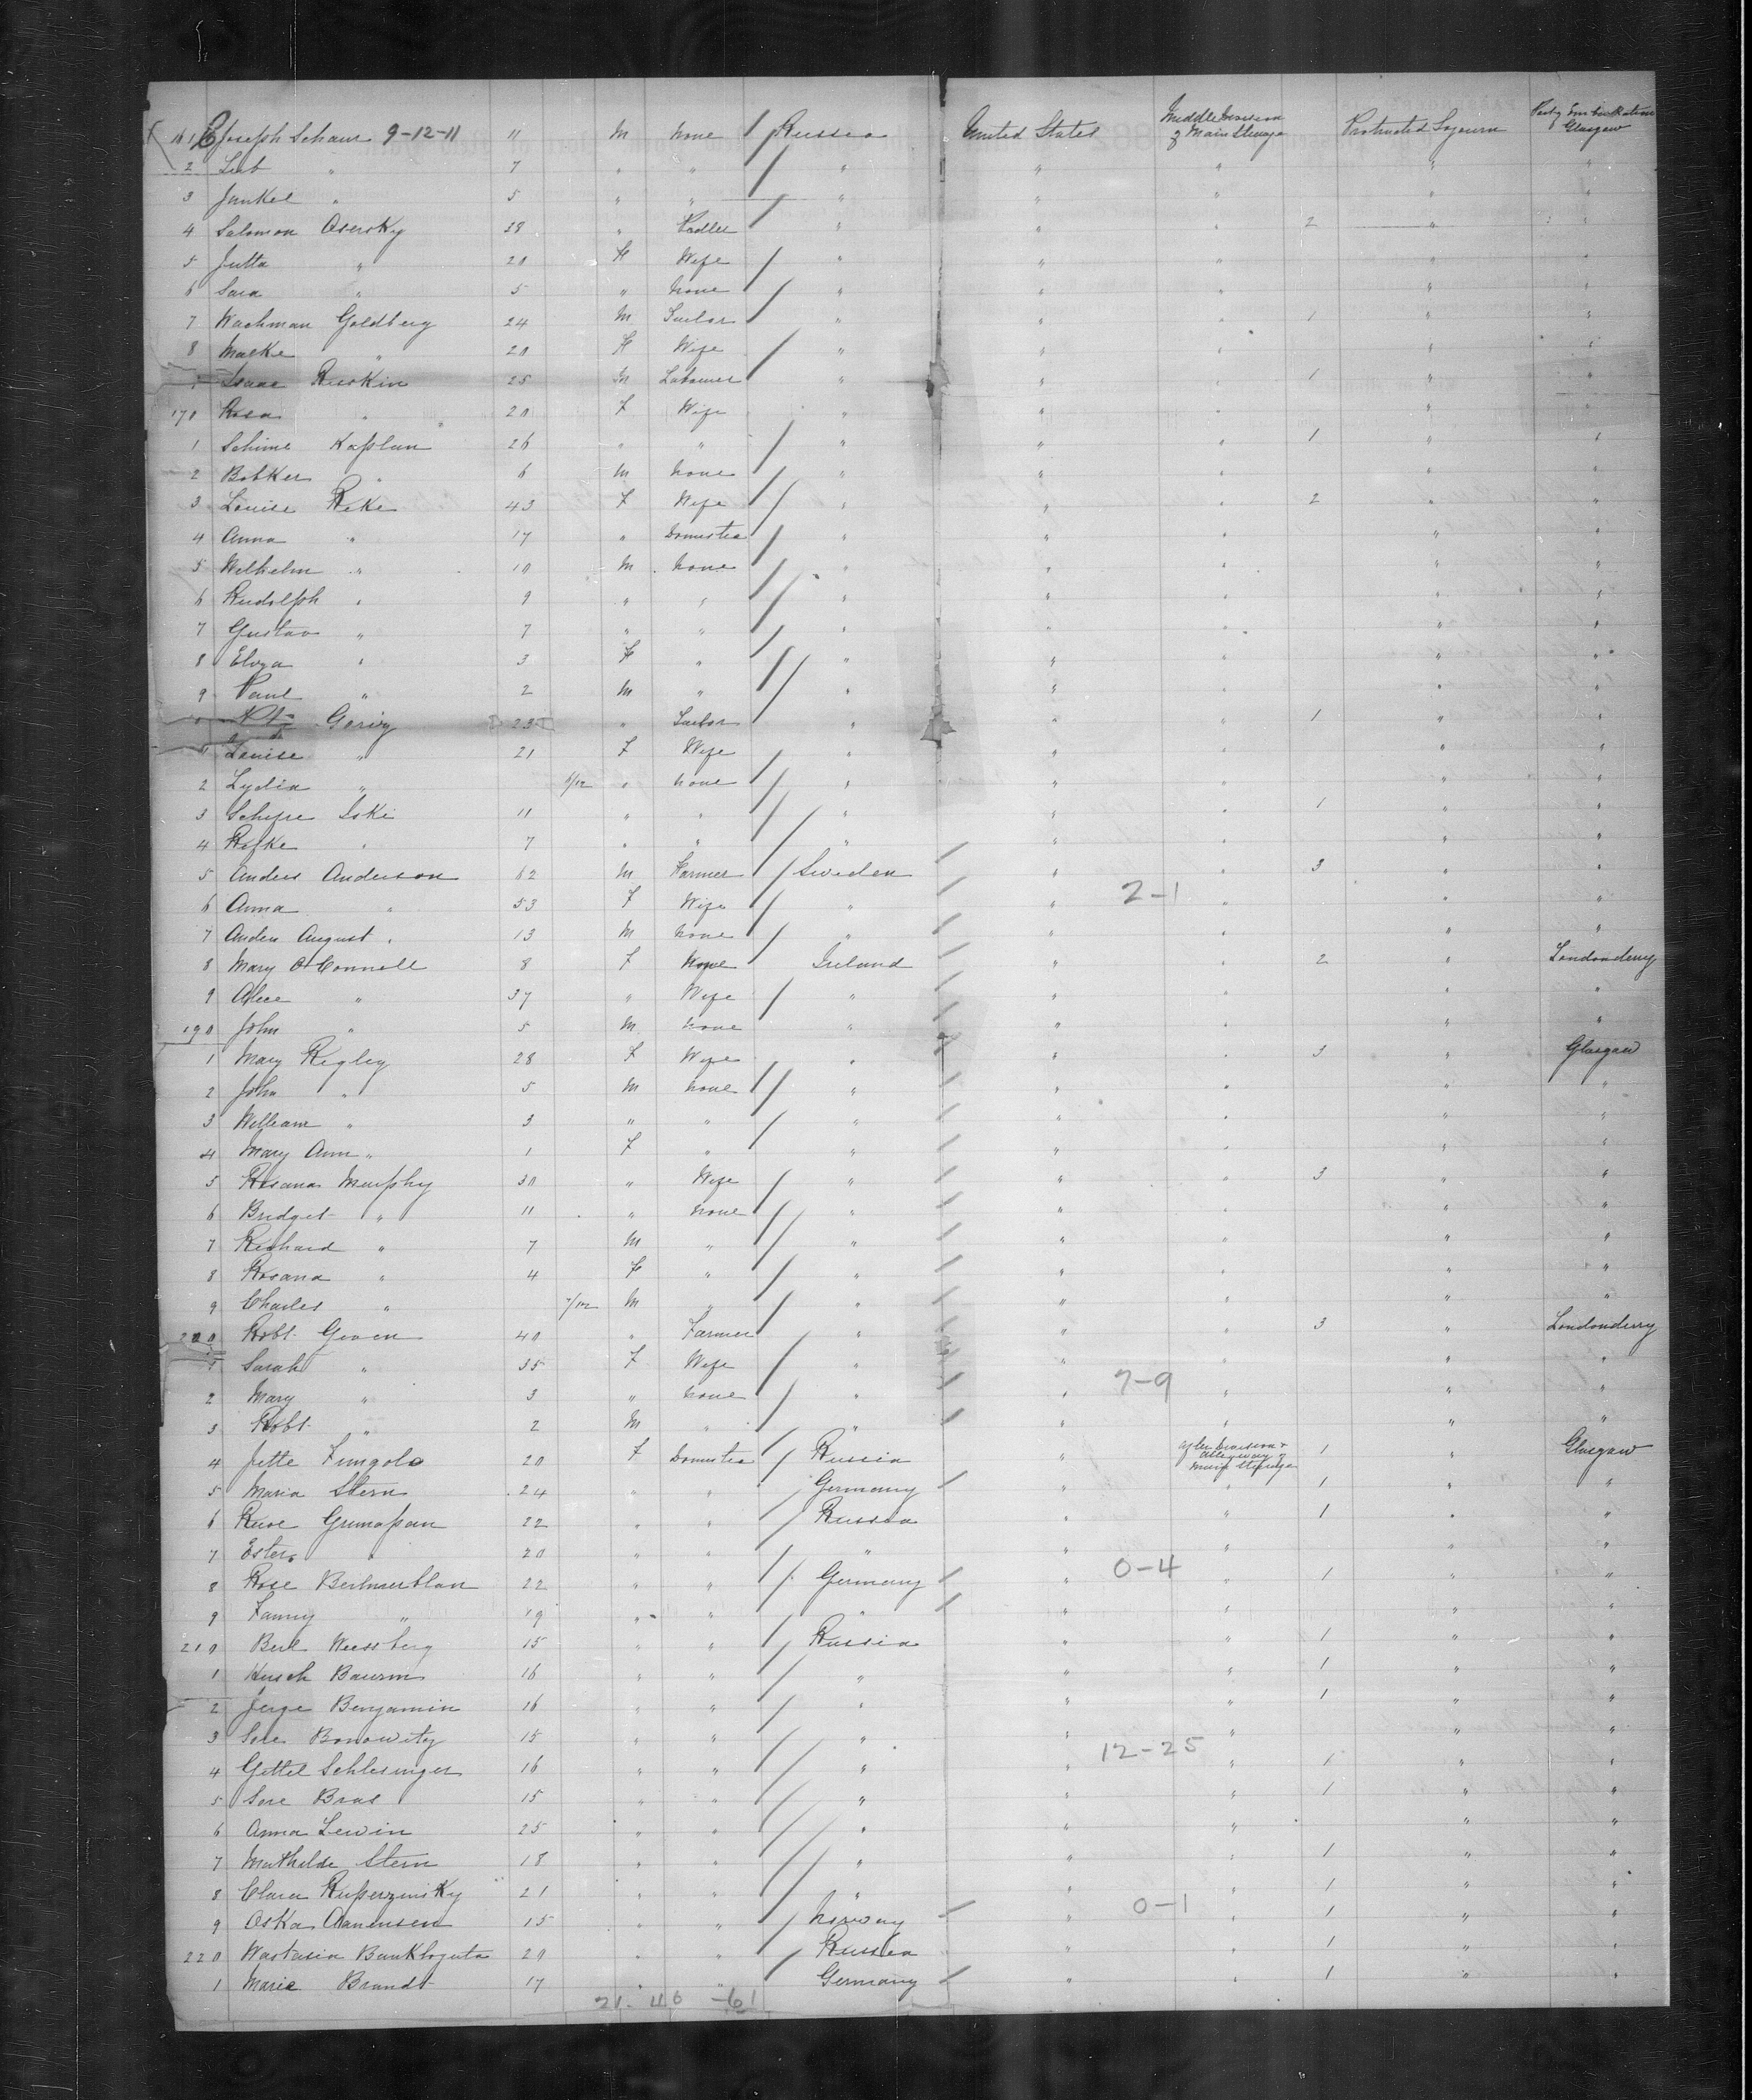 161 Joseph Schaur 9-12-11 11 M None / Russia United States Middle Division of Main Steerage Protracted Sojourn Port of Embarkation Glasgow
2 Leib " 7 " " / " " " " "
3 Jankel " 5 " " " " " " "
4 Salomon Osersky 38 " Pedler / " " " 2 " "
5 Jutta " 20 F Wife / " " " " "
6 Sara " 5 " None / " " " " "
7 Wachman Goldberg 24 M Tailor / " " " 1 " "
8 Maske " 20 F Wife / " " " " "
9 Isaac Ruskin 25 M Labourer " " " 1 " "
170 Rosa " 20 F Wife " " " " "
1 Schime Kaplan 26 " " / " " " 1 " "
2 Bobker " 6 M None / " " " " "
3 Louise Reke 43 F Wife / " " " 2 " "
4 Anna " 17 " Domestic / " " " " "
5 Wilhelm " 10 M None / " " " " "
6 Rudolph " 9 " " / " " " " "
7 Gustav " 7 " " / " " " " "
8 Elvya " 3 F " / " " " " "
9 Paul " 2 M " / " " " " "
Goring 23 " Tailor " " " 1 " "
1 Louise " 21 F Wife " " " " "
2 Lydia " 6/12 " None / " " " " "
3 Schepre Loki 11 " " / " " " 1 " "
4 Rifke " 7 " " / " " " " "
5 Anders Anderson 62 M Farmer / Sweden / " " 3 " "
6 Anna " 53 F Wife / " / " 2-1 " " "
7 Anders August " 13 M None / " / " " " "
8 Mary O'Connell 8 F None Ireland / " " 2 " Londonderry
9 Alice " 37 " Wife / " / " " " "
190 John " 5 M None " / " " " "
1 Mary Rigley 28 F Wife " / " " 3 " Glasgow
2 John " 5 M None / " / " " " "
3 William " 3 " " / " / " " " "
4 Mary Ann " 1 F " / " / " " " "
5 Rosana Murphy 30 " Wife / " / " " 3 " "
6 Bridget " 11 " None / " / " " " "
7 Richard " 7 M " / " / " " " "
8 Rosana " 4 F " / " / " " " "
9 Charles " 7/12 M " / " / " " " "
200 Robt Given 40 " Farmer " / " " 3 " Londonderry
1 Sarah " 35 F Wife / " / " " " "
2 Mary " 3 " None / " / " 7-9 " " "
3 Robt " 2 M " " / " " " "
4 Jette Fungold 20 F Domestic / Russia " After Division & Alleyway of Main Steerage 1 " Glasgow
5 Maria Stern 24 " " / Germany / " " 1 " "
6 Rose 22 " " / Russia " " 1 " "
7 Ester " 20 " " " " " " "
8 Rose 22 " " / Germany / " 0-4 " 1 " "
9 Fanny " 19 " " " / " " " "
210 Berl Weissberg 15 " " / Russia " " 1 " "
1 Hirsch Baurm 16 " " / " " " 1 " "
2 Jerge Benjamin 16 " " / " " " 1 " "
3 Sere Bonowitz 15 " " / " " " " "
4 Gittel Schlesinger 16 " " / " " 12-25 " 1 " "
5 Sore Bras 15 " " / " " " 1 " "
6 Anna Lewin 25 " " / " " " " "
7 Mathilde Stern 18 " " / " " " 1 " "
8 Clara 21 " " / " " " 1 " "
9 Oska Aanensen 15 " " / Norway / " 0-1 " 1 " "
220 20 " " / Russia " " 1 " "
1 Marie Brandt 17 " " / Germany / " " 1 " "
21 46 -61